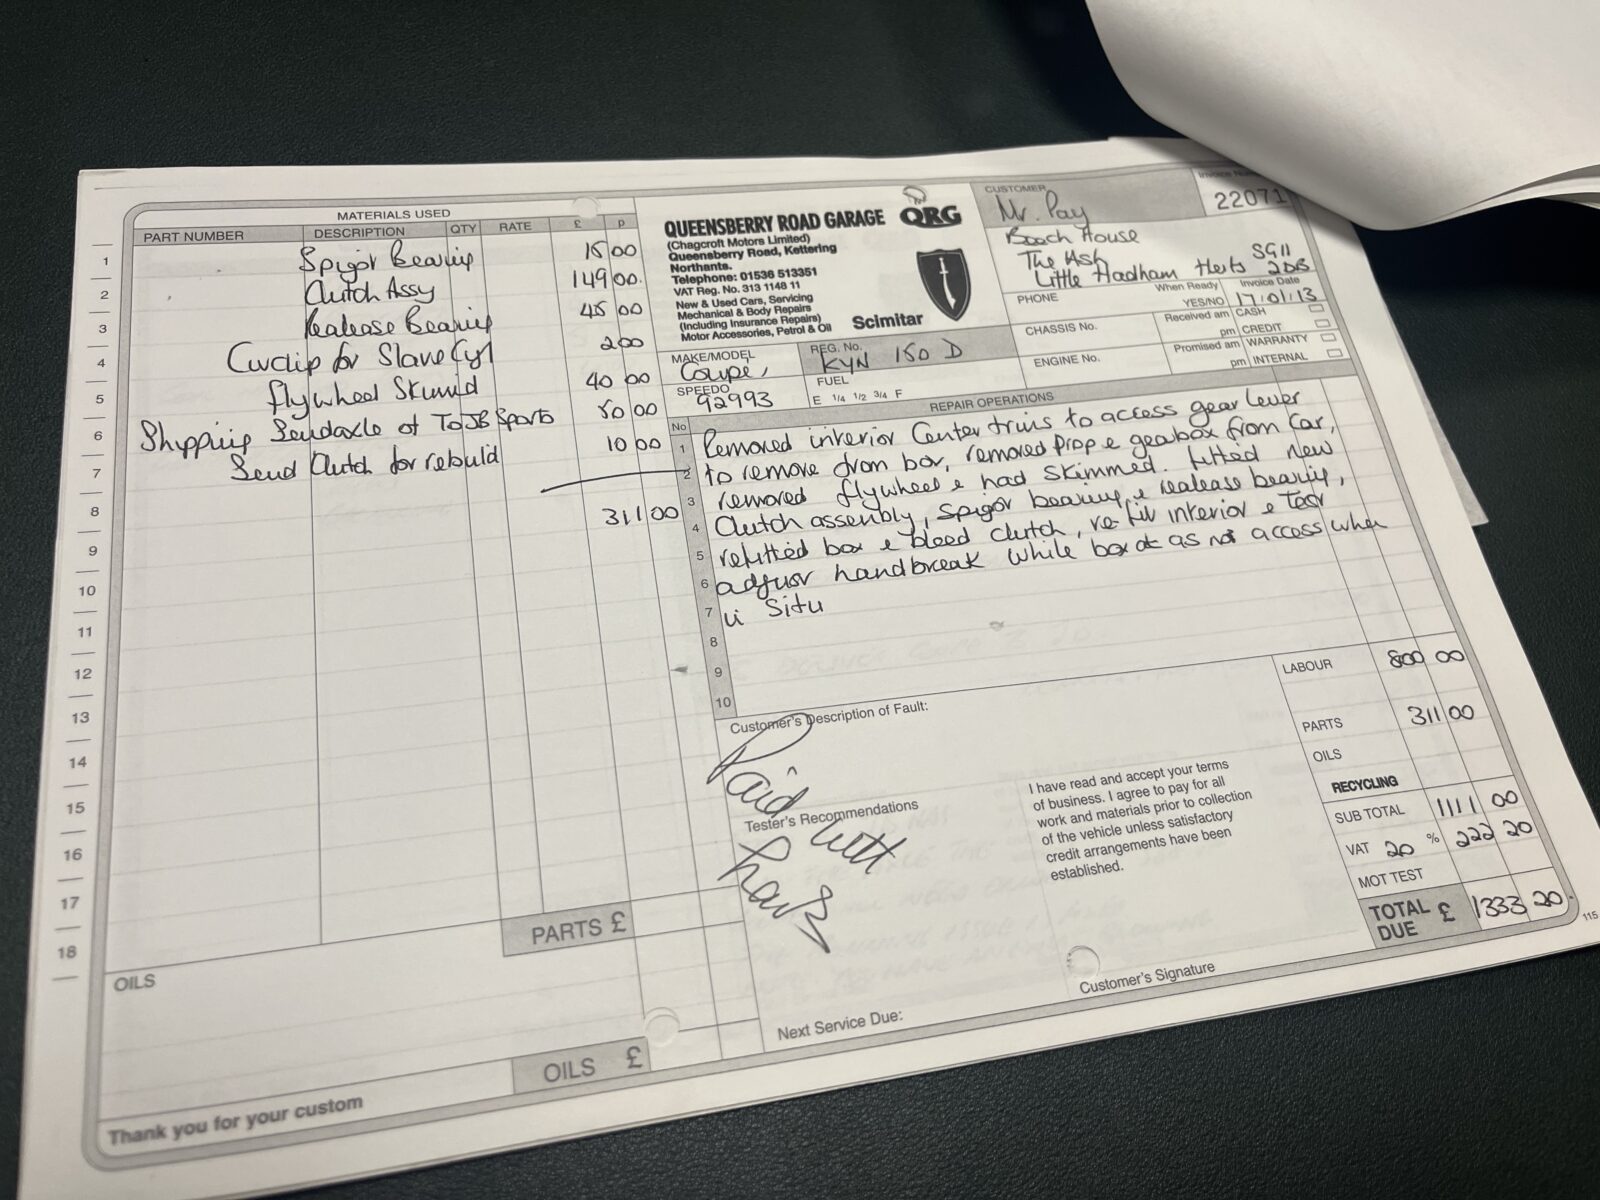 MATERIALS USED
PART NUMBER DESCRIPTION QTY RATE £ p
1 Spigot Bearing 15 00
2 Clutch Assy 149 00
3 Realease Bearing 45 00
4 Circlip for Slave Cyl 2 00
5 Flywheel Skimid 40 00
6 Shipping Sendaxle of To JB Sports 50 00
7 Send Clutch for rebuild 10 00
8 311 00
9
10
11
12
13
14
15
16
17
18
PARTS £
OILS
OILS £
Thank you for your custom
QUEENSBERRY ROAD GARAGE QRG
(Chagcroft Motors Limited)
Queensberry Road, Kettering
Northants.
Telephone: 01536 513351
VAT Reg. No. 313 1148 11
New & Used Cars, Servicing
Mechanical & Body Repairs
(Including Insurance Repairs)
Motor Accessories, Petrol & Oil
Scimitar
CUSTOMER
Mr. Pay
Invoice
22071
Booch House
The Ash SG11
Little Hadham Herts 2DB
PHONE
When Ready
YES/NO
Invoice Date
17/01/13
CHASSIS No.
Received am
pm
CASH
CREDIT
ENGINE No.
Promised am
pm
WARRANTY
INTERNAL
MAKE/MODEL
Coupe,
REG. No.
KYN 150 D
SPEEDO
92993
FUEL
E 1/4 1/2 3/4 F
No REPAIR OPERATIONS
1 Removed interior Center trims to access gear lever
2 to remove from box, removed prop & gearbox from car,
3 removed flywheel & had skimmed. fitted new
4 Clutch assembly, Spigot bearing & realease bearing,
5 refitted box & bleed clutch, re-fit interior & Test
6 adjust handbreak while box ot as not access when
7 in Situ
8
9
10
Customer's Description of Fault:
Paid with
Thanks
Tester's Recommendations
I have read and accept your terms
of business. I agree to pay for all
work and materials prior to collection
of the vehicle unless satisfactory
credit arrangements have been
established.
Next Service Due:
Customer's Signature
LABOUR 800 00
PARTS 311 00
OILS
RECYCLING
SUB TOTAL 1111 00
VAT 20 % 222 20
MOT TEST
TOTAL DUE £ 1333 20
115